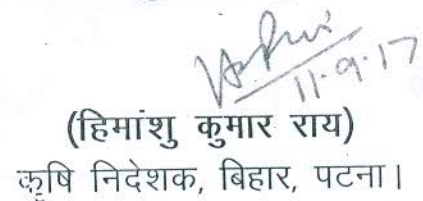 11.9.17
(हिमांशु कुमार राय)
कृषि निदेशक, बिहार, पटना।